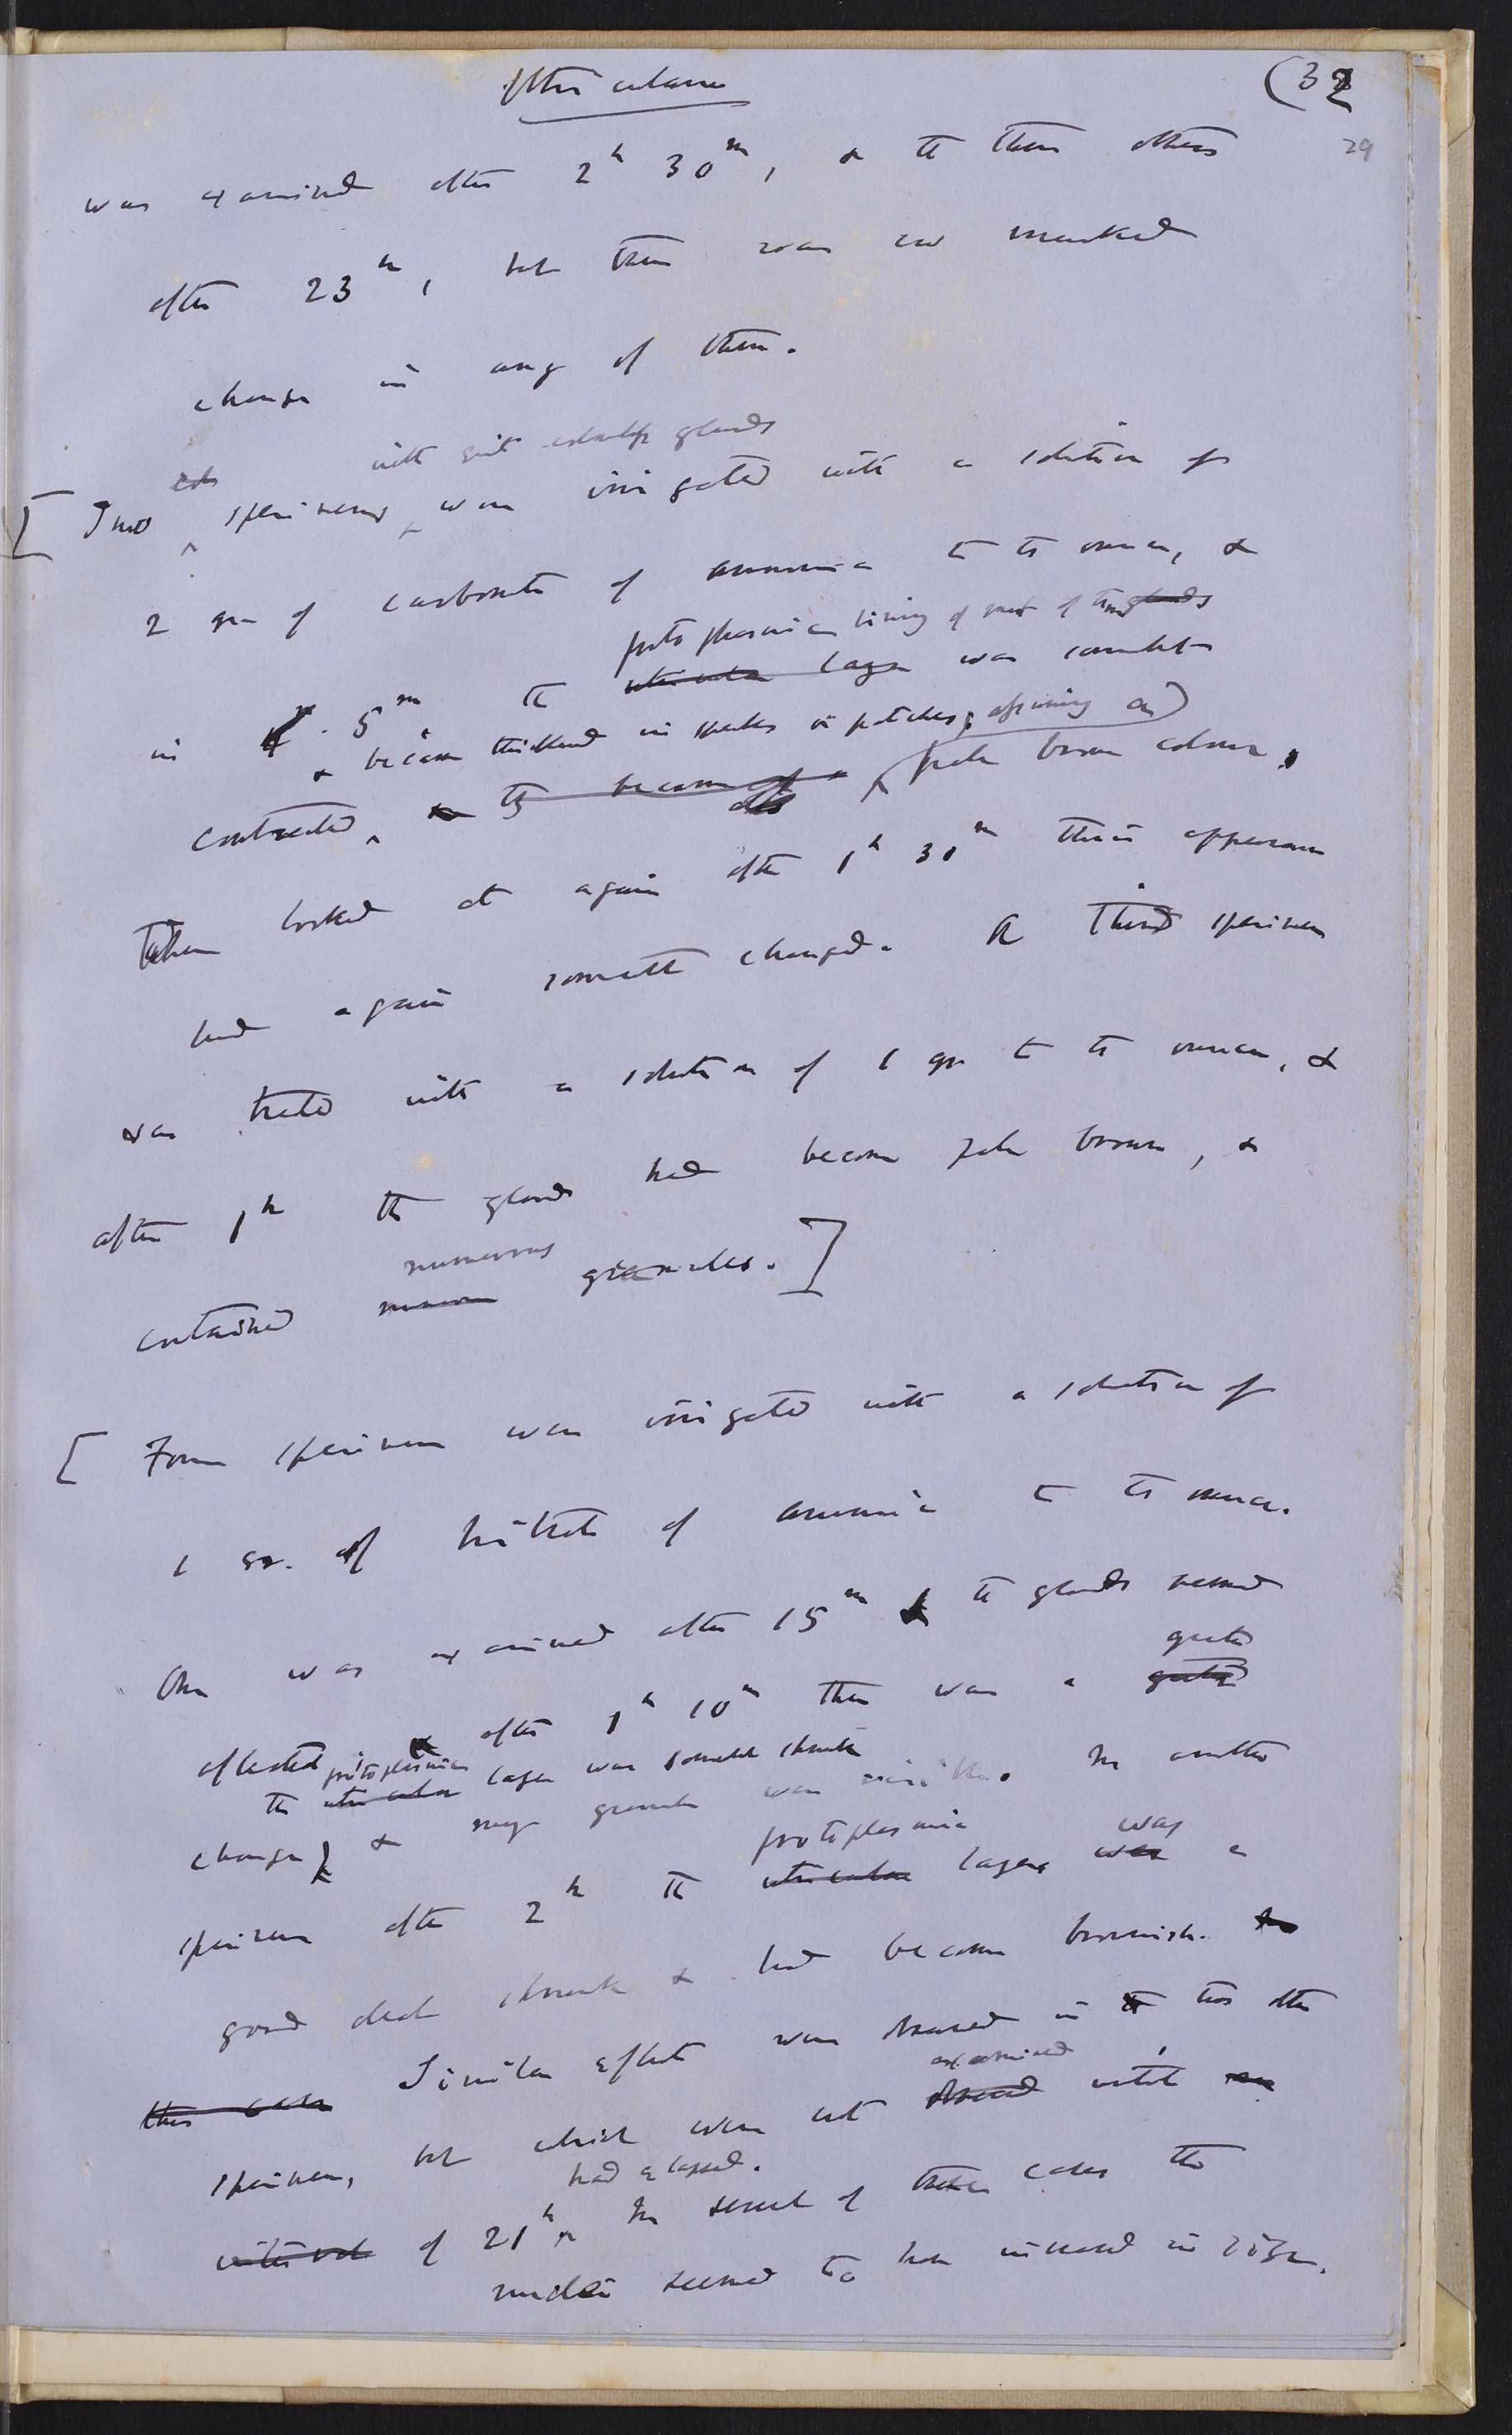 Utricularia
(32
29
was examined after 2h 30m, & the three others
after 23h, but there was no marked
change in any of them.
with quite colourless glands
[Two specimens were irrigated with a solution of
2 grs of carbonate of ammonia to the ounce, &
protoplasmic lining of most of the glands
in 5m. the utricular layer was somewhat
& became thickened in specks or patches, assuming a
contracted, & they became of a pale brown colour.
When looked at again after 1h 30m their appearance
had again somewhat changed. A third specimen
was treated with a solution of 1 gr to the ounce, &
after 1h the glands had become pale brown, &
numerous
contained numerous granules.]
[Four specimens were irrigated with a solution of
1 gr. of nitrate of ammonia to the ounce.
One was examined after 15m & the glands seemed
greater
affected, after 1h 10m there was a greater
protoplasmic
the utricular layer was somewhat shrunk
change, & many granules were visible. In another
protoplasmic was
specimen after 2h the utricular layer was a
good deal shrunk & had become brownish. In
this case Similar effects were observed in the two other
examined
specimens, but which were not observed until an
had elapsed.
interval of 21h. In several of these cases the
nuclei seemed to have increased in size.